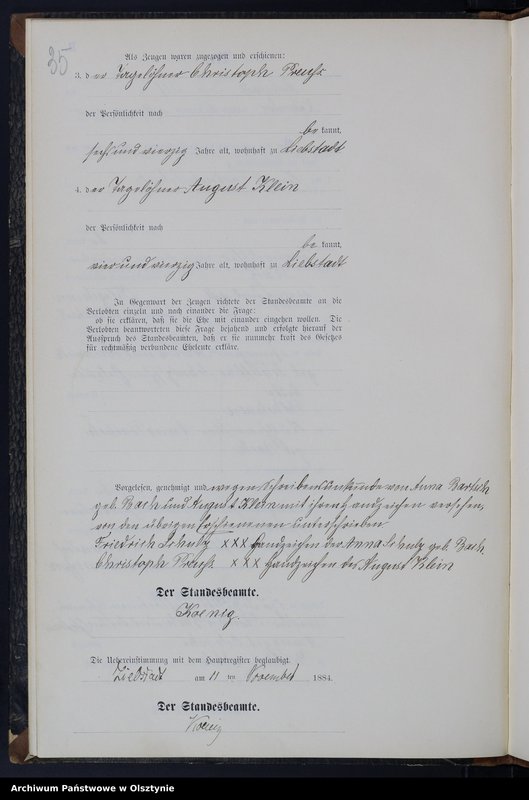 35
Als Zeugen waren zugezogen und erschienen:
3. der Tagelöhner Christoph Preuß
der Persönlichkeit nach
be kannt,
sechs und vierzig Jahre alt, wohnhaft zu Liebstadt
4. der Tagelöhner August Klein
der Persönlichkeit nach
be kannt,
vier und vierzig Jahre alt, wohnhaft zu Liebstadt
In Gegenwart der Zeugen richtete der Standesbeamte an die
Verlobten einzeln und nach einander die Frage:
ob sie erklären, daß sie die Ehe mit einander eingehen wollen. Die
Verlobten beantworteten diese Frage bejahend und erfolgte hierauf der
Ausspruch des Standesbeamten, daß er sie nunmehr kraft des Gesetzes
für rechtmäßig verbundene Eheleute erkläre.
Vorgelesen, genehmigt und wegen Schreibensunkunde von Anna
geb. Bach und August Klein mit ihren Handzeichen versehen,
von den übrigen Erschienenen unterschrieben
Friedrich Schulz XXX Handzeichen der Anna Schulz geb. Bach
Christoph Preuß XXX Handzeichen des August Klein
Der Standesbeamte.
Koenig.
Die Uebereinstimmung mit dem Hauptregister beglaubigt.
Liebstadt am 11 ten November 1884.
Der Standesbeamte.
Koenig
Archiwum Państwowe w Olsztynie